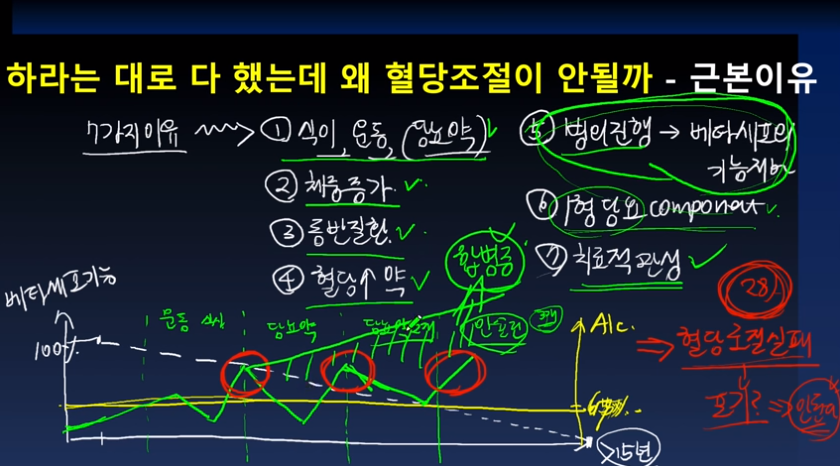 하라는 대로 다 했는데 왜 혈당조절이 안될까 - 근본이유
7가지이유
① 식이, 운동, (당뇨약)
② 체중증가
③ 동반질환
④ 혈당↑ 약
⑤ 병의진행 → 베타세포의
기능저하
⑥ 1형 당뇨 component
⑦ 치료적관성
합병증
베타세포기능
100%
운동 식이
당뇨약
인슐린
A1c.
>15년
28%
⇒ 혈당조절실패
포기? ⇒